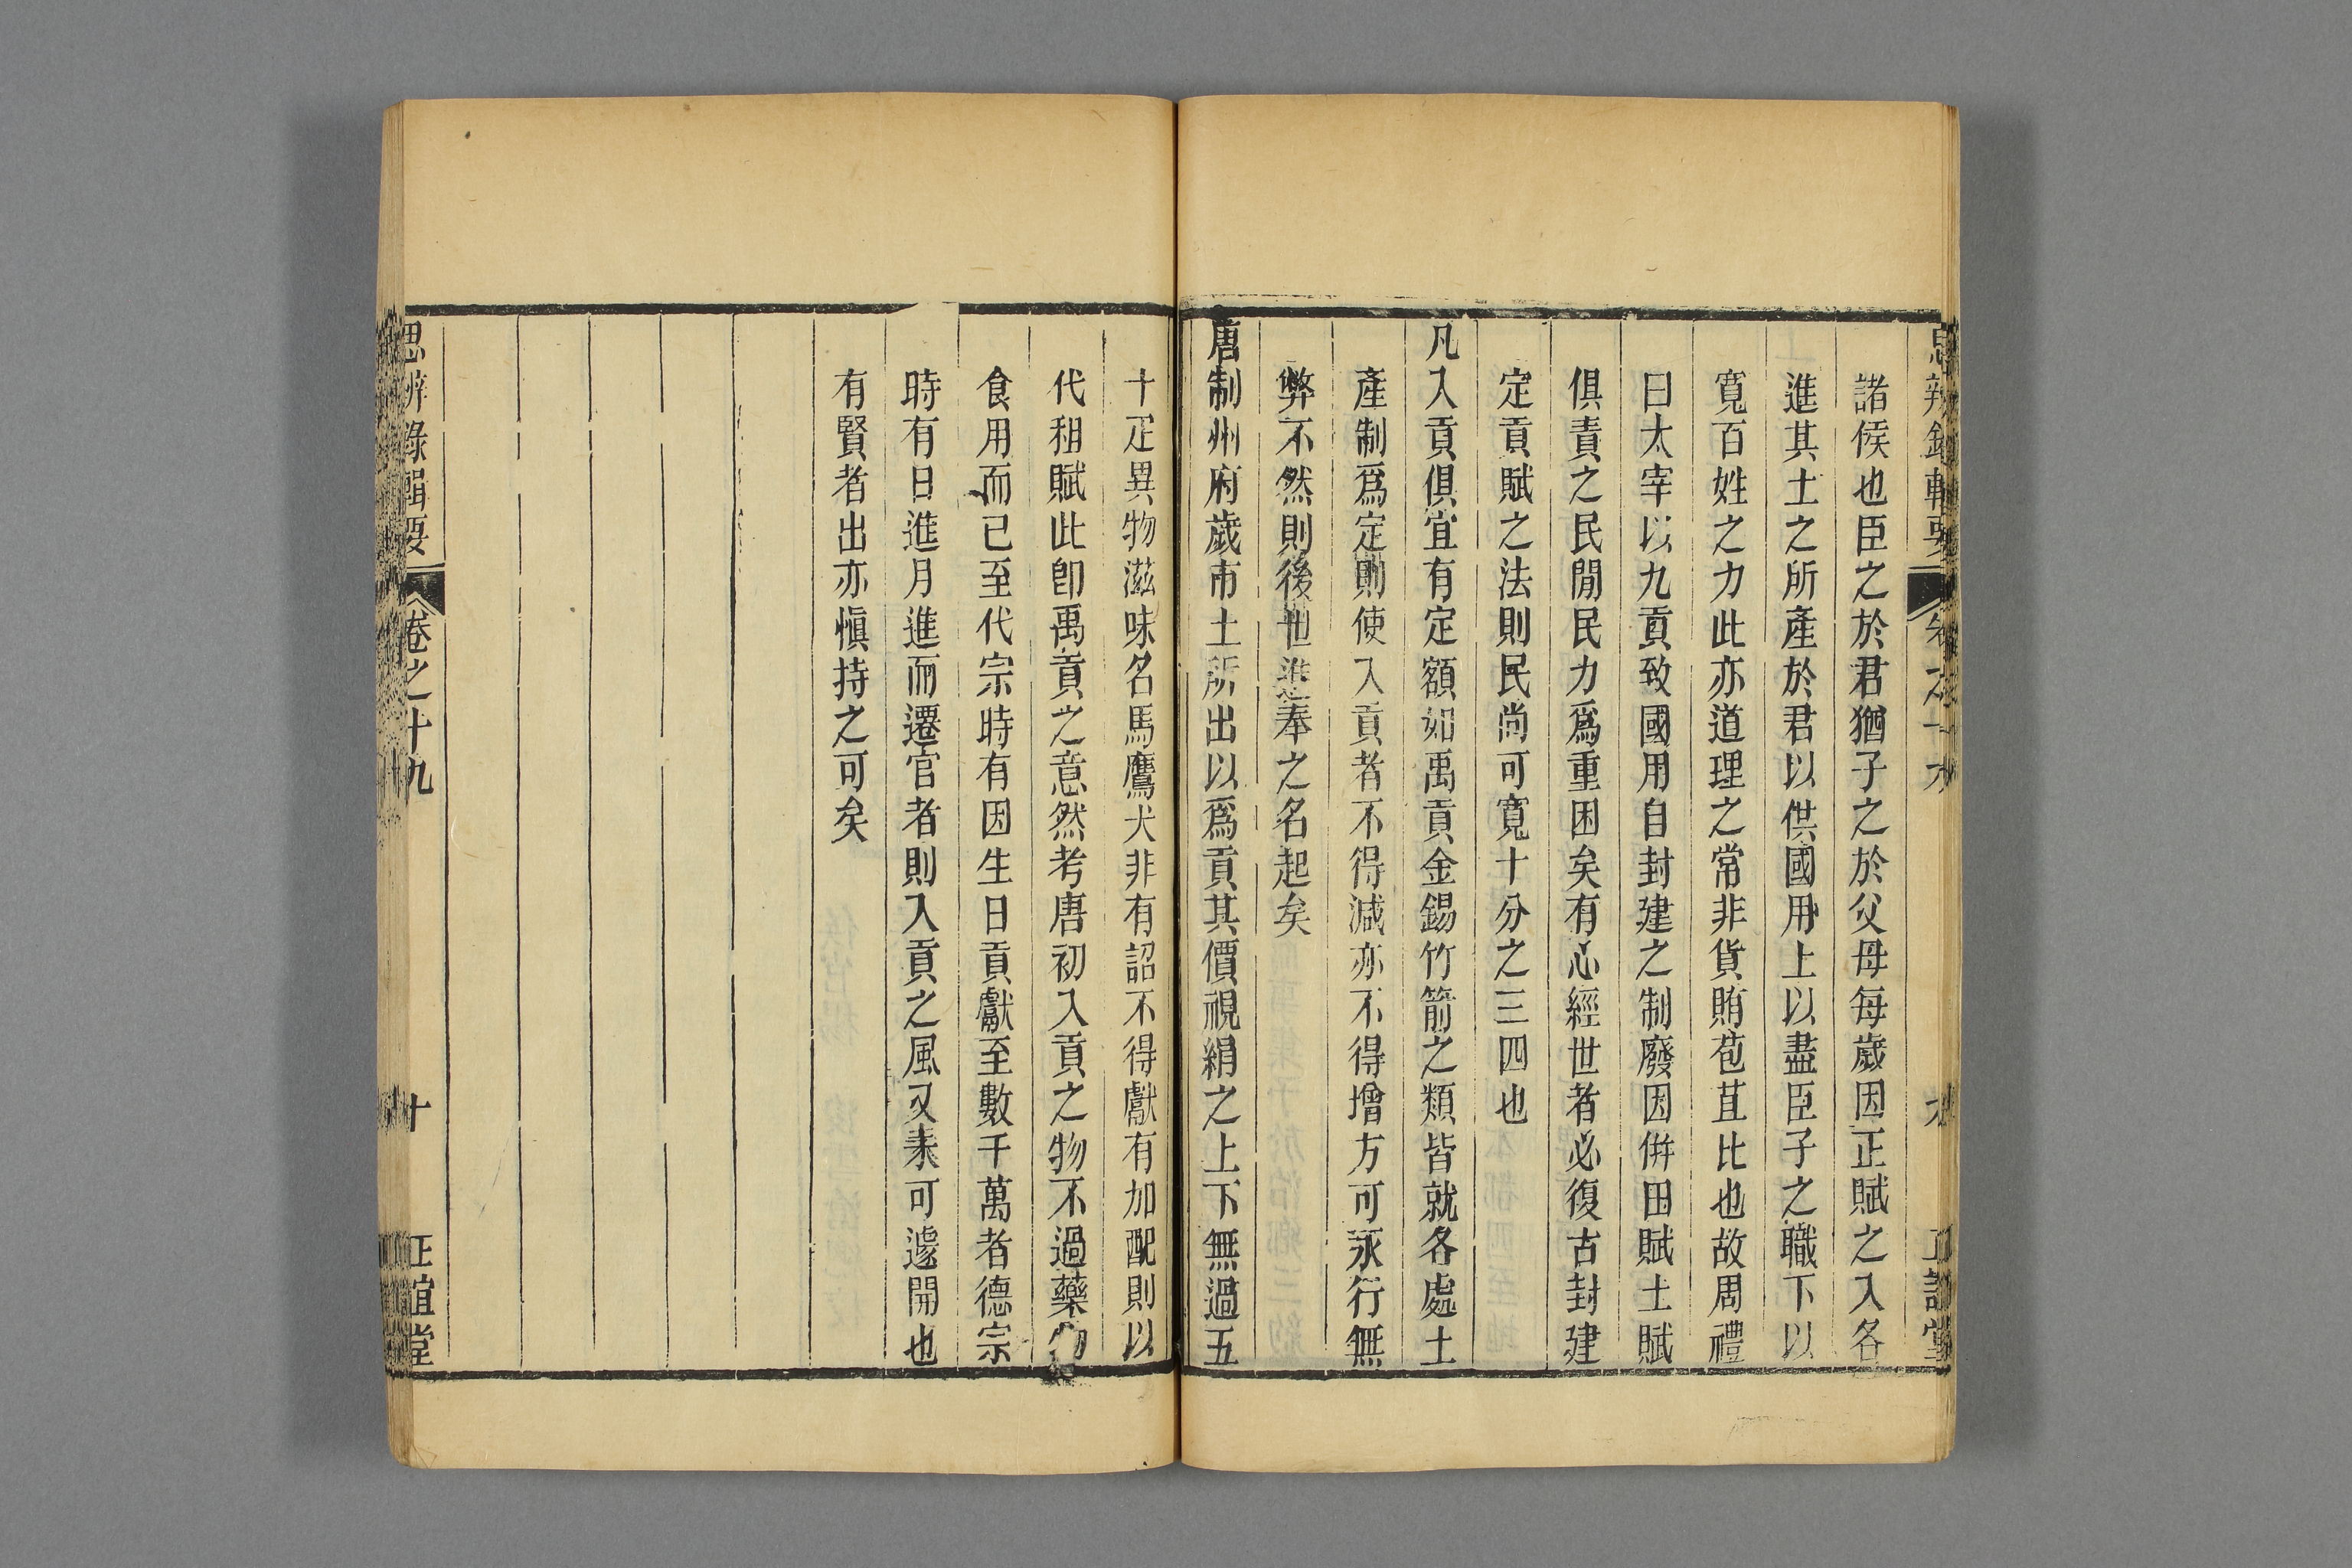 諸侯也臣之於君猶子之於父母每歲因正賦之入各
進其土之所產於君以供國用上以盡臣子之職下以
寬百姓之力此亦道理之常非貨賄苞苴比也故周禮
曰太宰以九貢致國用自封建之制廢因倂田賦土賦
俱責之民閒民力爲重困矣有心經世者必復古封建
定貢賦之法則民尚可寬十分之三四也
凡入貢俱宜有定額如禹貢金錫竹箭之類皆就各處土
產制爲定則使入貢者不得減亦不得增方可永行無
弊不然則後世進奉之名起矣
唐制州府歲市土所出以爲貢其價視絹之上下無過五
十疋異物滋味名馬鷹犬非有詔不得獻有加配則以
代租賦此卽禹貢之意然考唐初入貢之物不過藥物
食用而已至代宗時有因生日貢獻至數千萬者德宗
時有日進月進而遷官者則入貢之風又未可遽開也
有賢者出亦愼持之可矣
思辨錄輯要 卷之十九 十 正誼堂